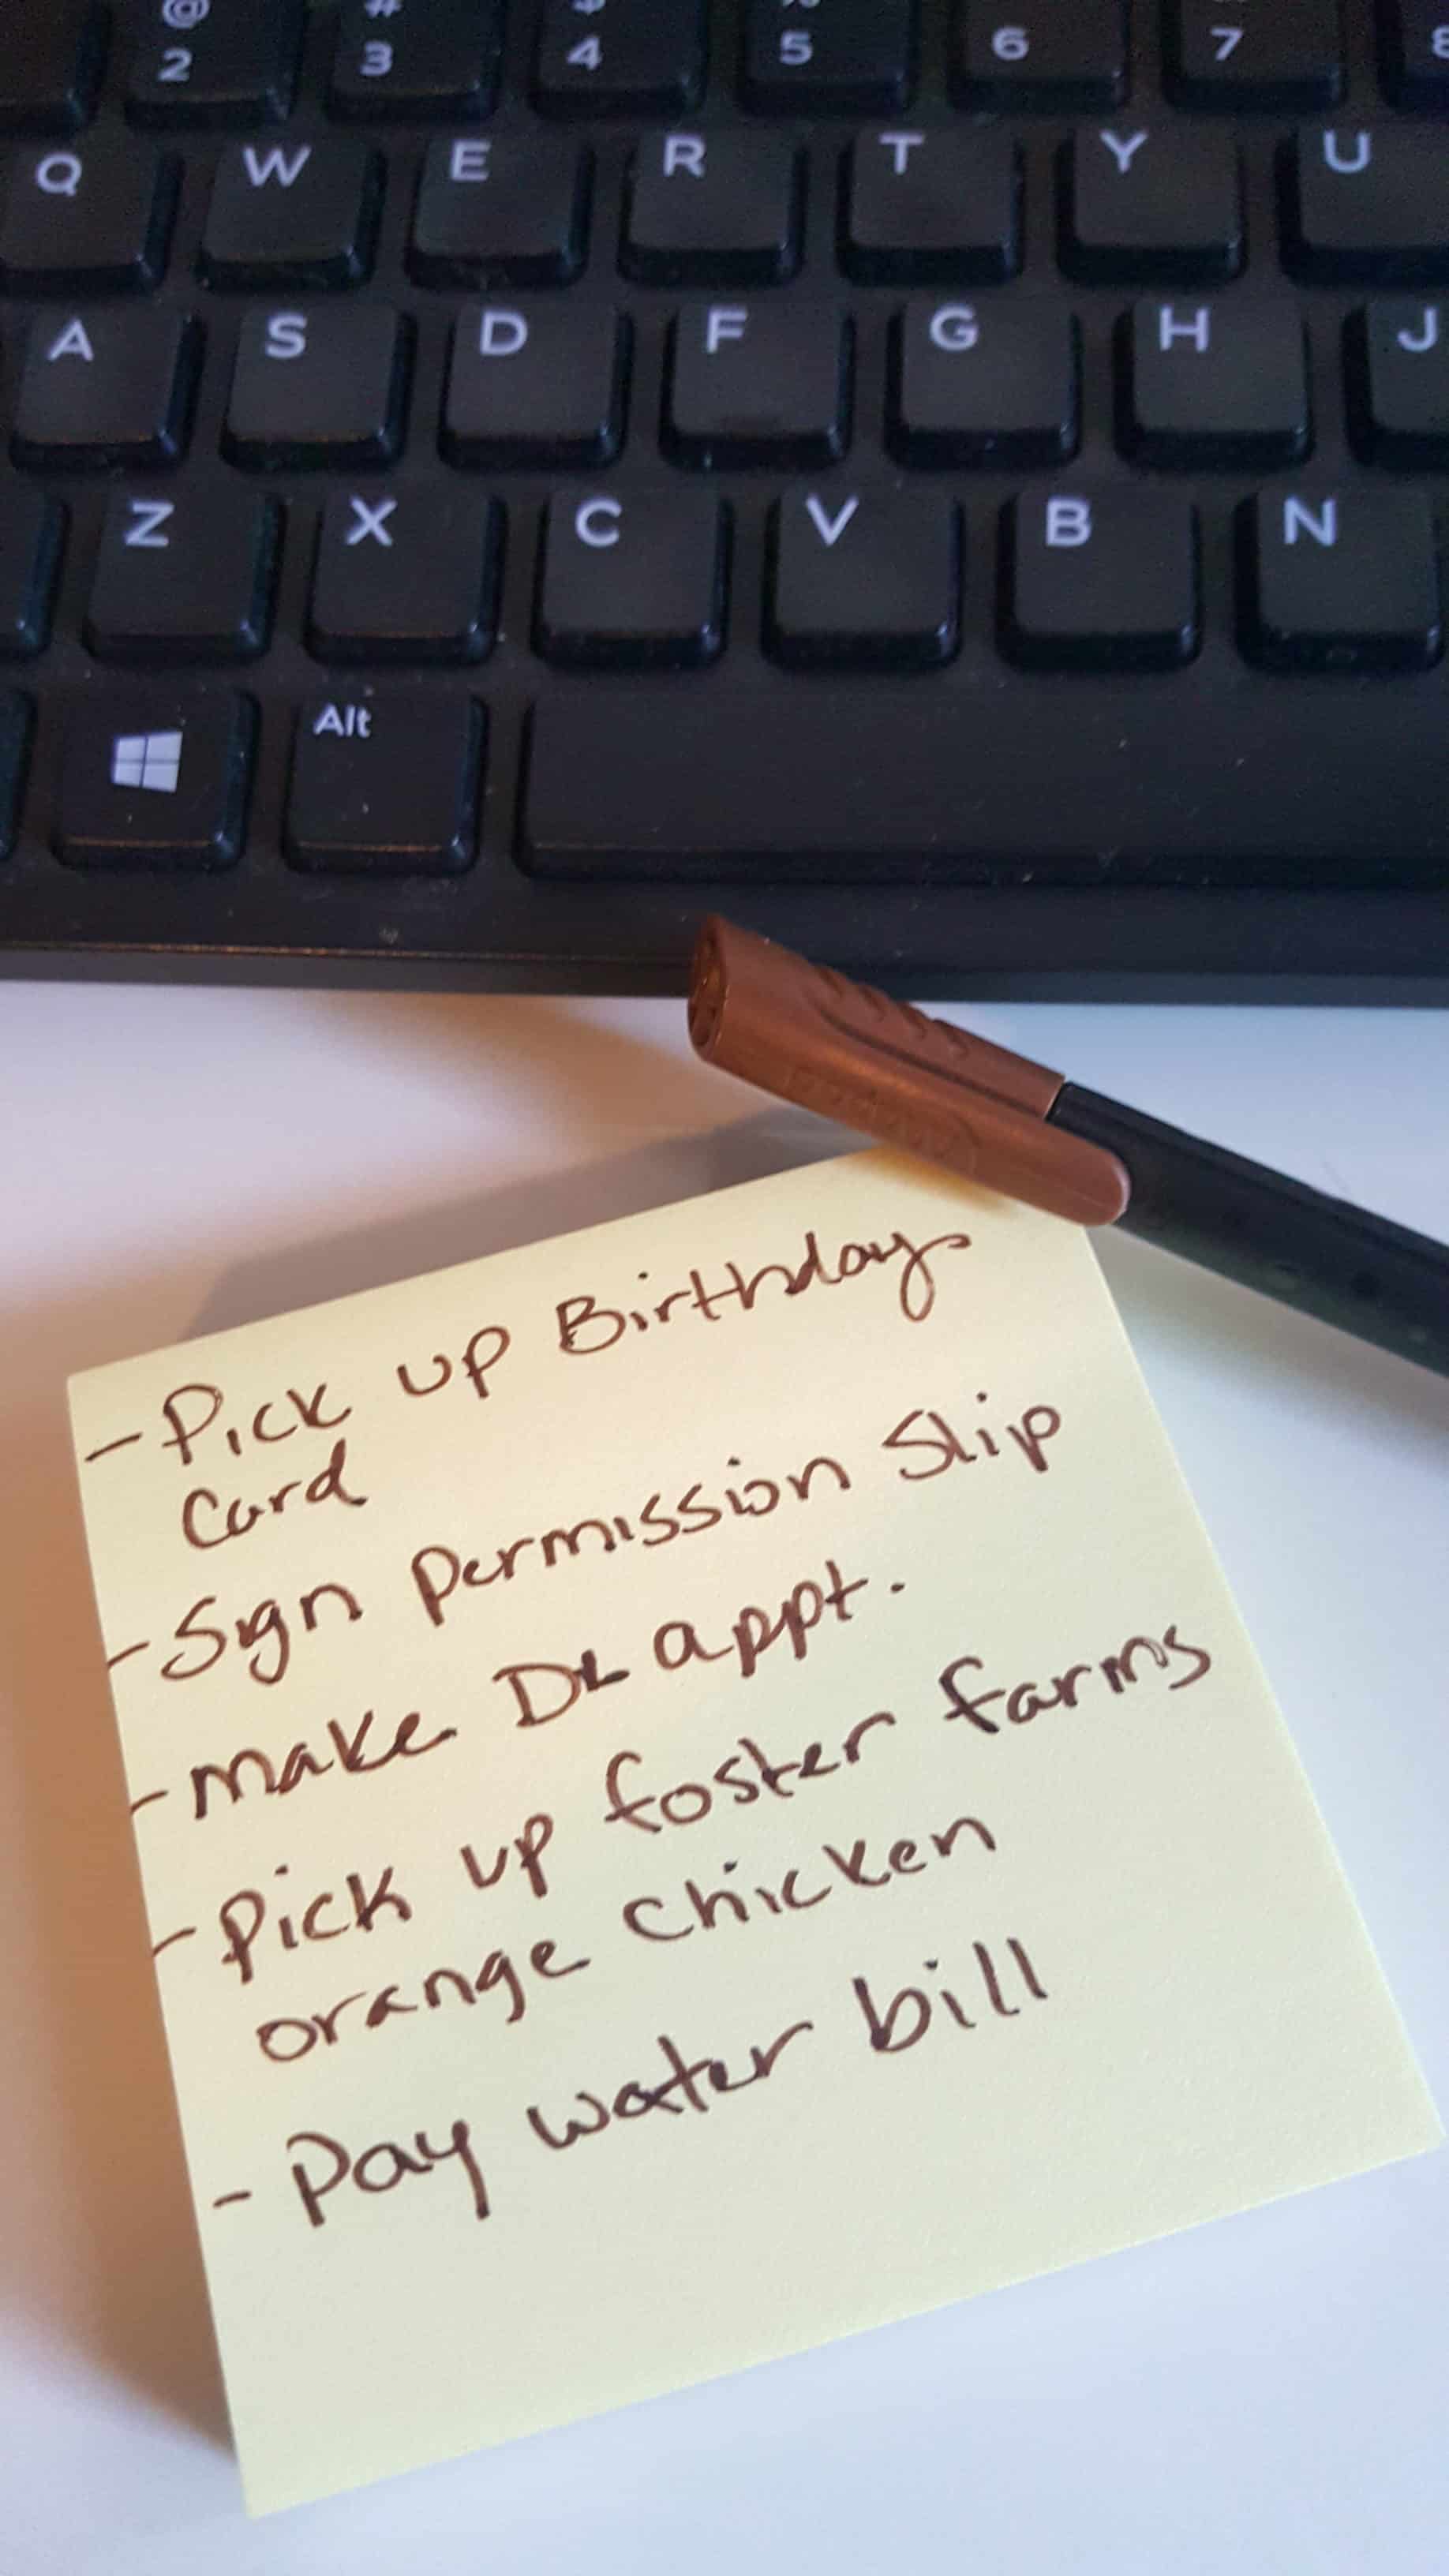 @ # $ %
2 3 4 5 6 7 8
Q W E R T Y U
A S D F G H J
Z X C V B N
Alt
- Pick up Birthday
Card
- Sign permission Slip
- make Dr appt.
- Pick up foster farms
orange chicken
- Pay water bill